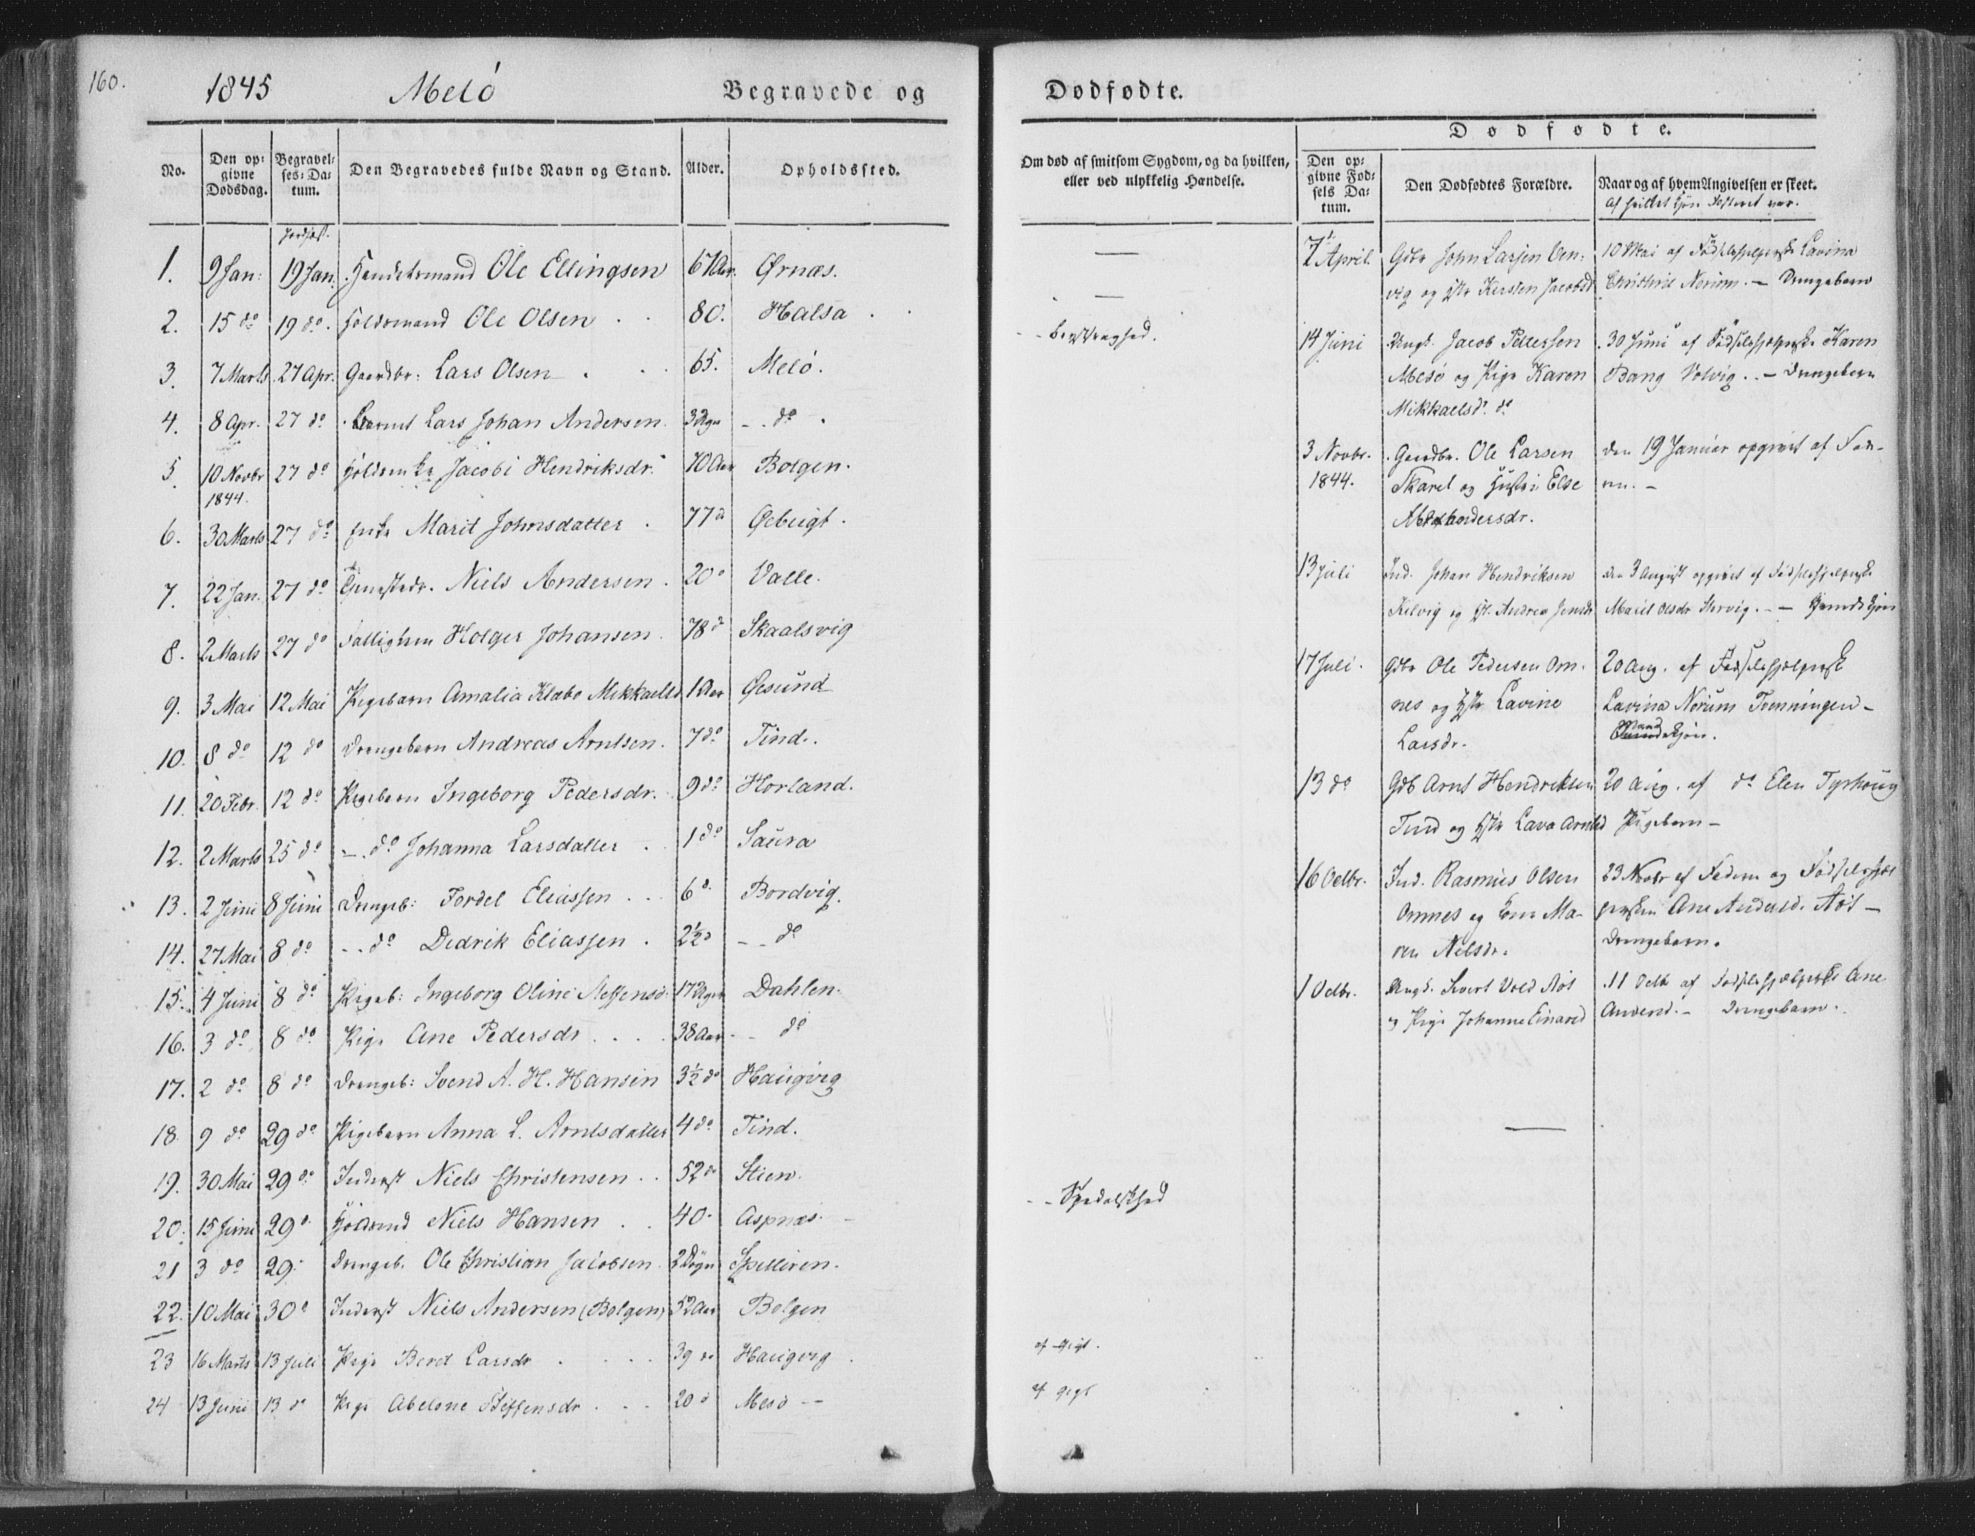 160.
1845 Melö Begravede og
No. Den opgivne Dödsdag. Begravelses-Datum. Den Begravedes fulde Navn og Stand. Alder. Opholdssted.
Jordfæst.
1. 9 Jan: 19 Jan. Handelsmand Ole Ellingsen 67 Aar. Ørnæs.
2. 15 do 19 do. Ole Olsen 80. Halsa
3. 7 Marts 27 Apr. Gaardbr: Lars Olsen 65. Melö.
4. 8 Apr. 27 do Barnet Lars Johan Andersen do
5. 10 Novbr 1844. 27 do Jacobi Hendriksdr. 70 Aar Bolgen.
6. 30 Marts 27 do Enke Marit Johnsdatter 77
7. 22 Jan. 27 do Tjenestedr. Niels Andersen 20 Valle.
8. 2 Marts 27 do Holger Johansen 78 Skaalsvig
9. 3 Mai 12 Mai Pigebarn Amalia Klabo Mikkaelsd. 1 Aar Øesund
10. 8 do 12 do Drengebarn Andreas Arntsen. 7 do Tind.
11. 20 Febr. 12 do Pigebarn Ingeborg Pedersdr. 9 do Horland.
12. 2 Marts 25 do do Johanna Larsdatter 1 do Saura
13. 2 Juni 8 Juni Drengeb: Fordel Eliassen 6 Bordvig.
14. 27 Mai 8 do do Didrik Eliassen 2½ do
15. 4 Juni 8 do Pigeb: Ingeborg Oline Steffensd. Dahlen
16. 3 do 8 do Pige Ane Pedersdr 38 Aar do
17. 2 do 8 do Drengeb: Svend A. H. Hansen 3½ do Haugvig
18. 9 do 29 do Pigebarn Anna L. Arntsdatter 4 do Tind.
19. 30 Mai 29 do Inderst Niels Christensen 52 Stien.
20. 15 Juni 29 Niels Hansen 40 Aspnæs.
21 3 do 29 Drengeb. Ole Christian Jacobsen 2 Døgn
22. 10 Mai 30 Inderst Niels Andersen (Bolgen) 52 Aar Bolgen
23 16 Marts 13 Juli Pige Berel Larsdr 39 Haugvig
24 13 Juni 13 do Pige Abelone Steffensdr 20 Melö
Dödfödte.
Om död af smitsom Sygdom, og da hvilken, eller ved ulykkelig Hændelse.
Dödfödte.
Den opgivne Födsels Datum. Den Dödfödtes Forældre. Naar og af hvem Angivelsen er skeet.
af hvilket Kjön Fosteret var.
Spedalskhed
af Gigt.
af gigt
7 April. Gdbr John Larsen 10 Mai af Födselshjelpersk Lavina
og Hstr Kirsten Jacobsd Christine Norum. – Drengebarn
14 Juni Ungk. Jacob Pettersen 30 Juni af Födselshjelperske Karen
Melö og Pige Karen Bang Volvig. – Drengebarn
Mikkaelsd. do
3 Novbr. Gaardbr. Ole Larsen den 19 Januar opgivet af Fad-
1844. Skaret og Hustru Else eren. –
13 Juli Ind. Johan Hendriksen den 3 August opgivet af Födselshjelperske
Kilvig og H. Andrea Jensdr Maril Olsdr
17 Juli. Gdbr Ole Pedersen Om- 20 Aug. af Födselshjelpersk
nes og Hstr Lavine Lavina Norum Tenningen –
Larsdr. Mandkjön.
13 do Gdb Arnt Hendriksen 20 Aug. af do Elen Tyrhoug
Tind og Hstr Lava Arntsd Pigebarn –
16 Octbr. Ind. Rasmus Olsen 23 Novbr af Faderen og Födselshjel
Omnes og Kone Ma- persken Ane Andersd. Aös –
ren Nilsdr. Drengebarn.
1 Octbr. Ungk. Sivert Vold Aös 11 Octb af Födselshjelperske Ane
og Pige Johanne Einarsd Andersd. – Drengebarn.